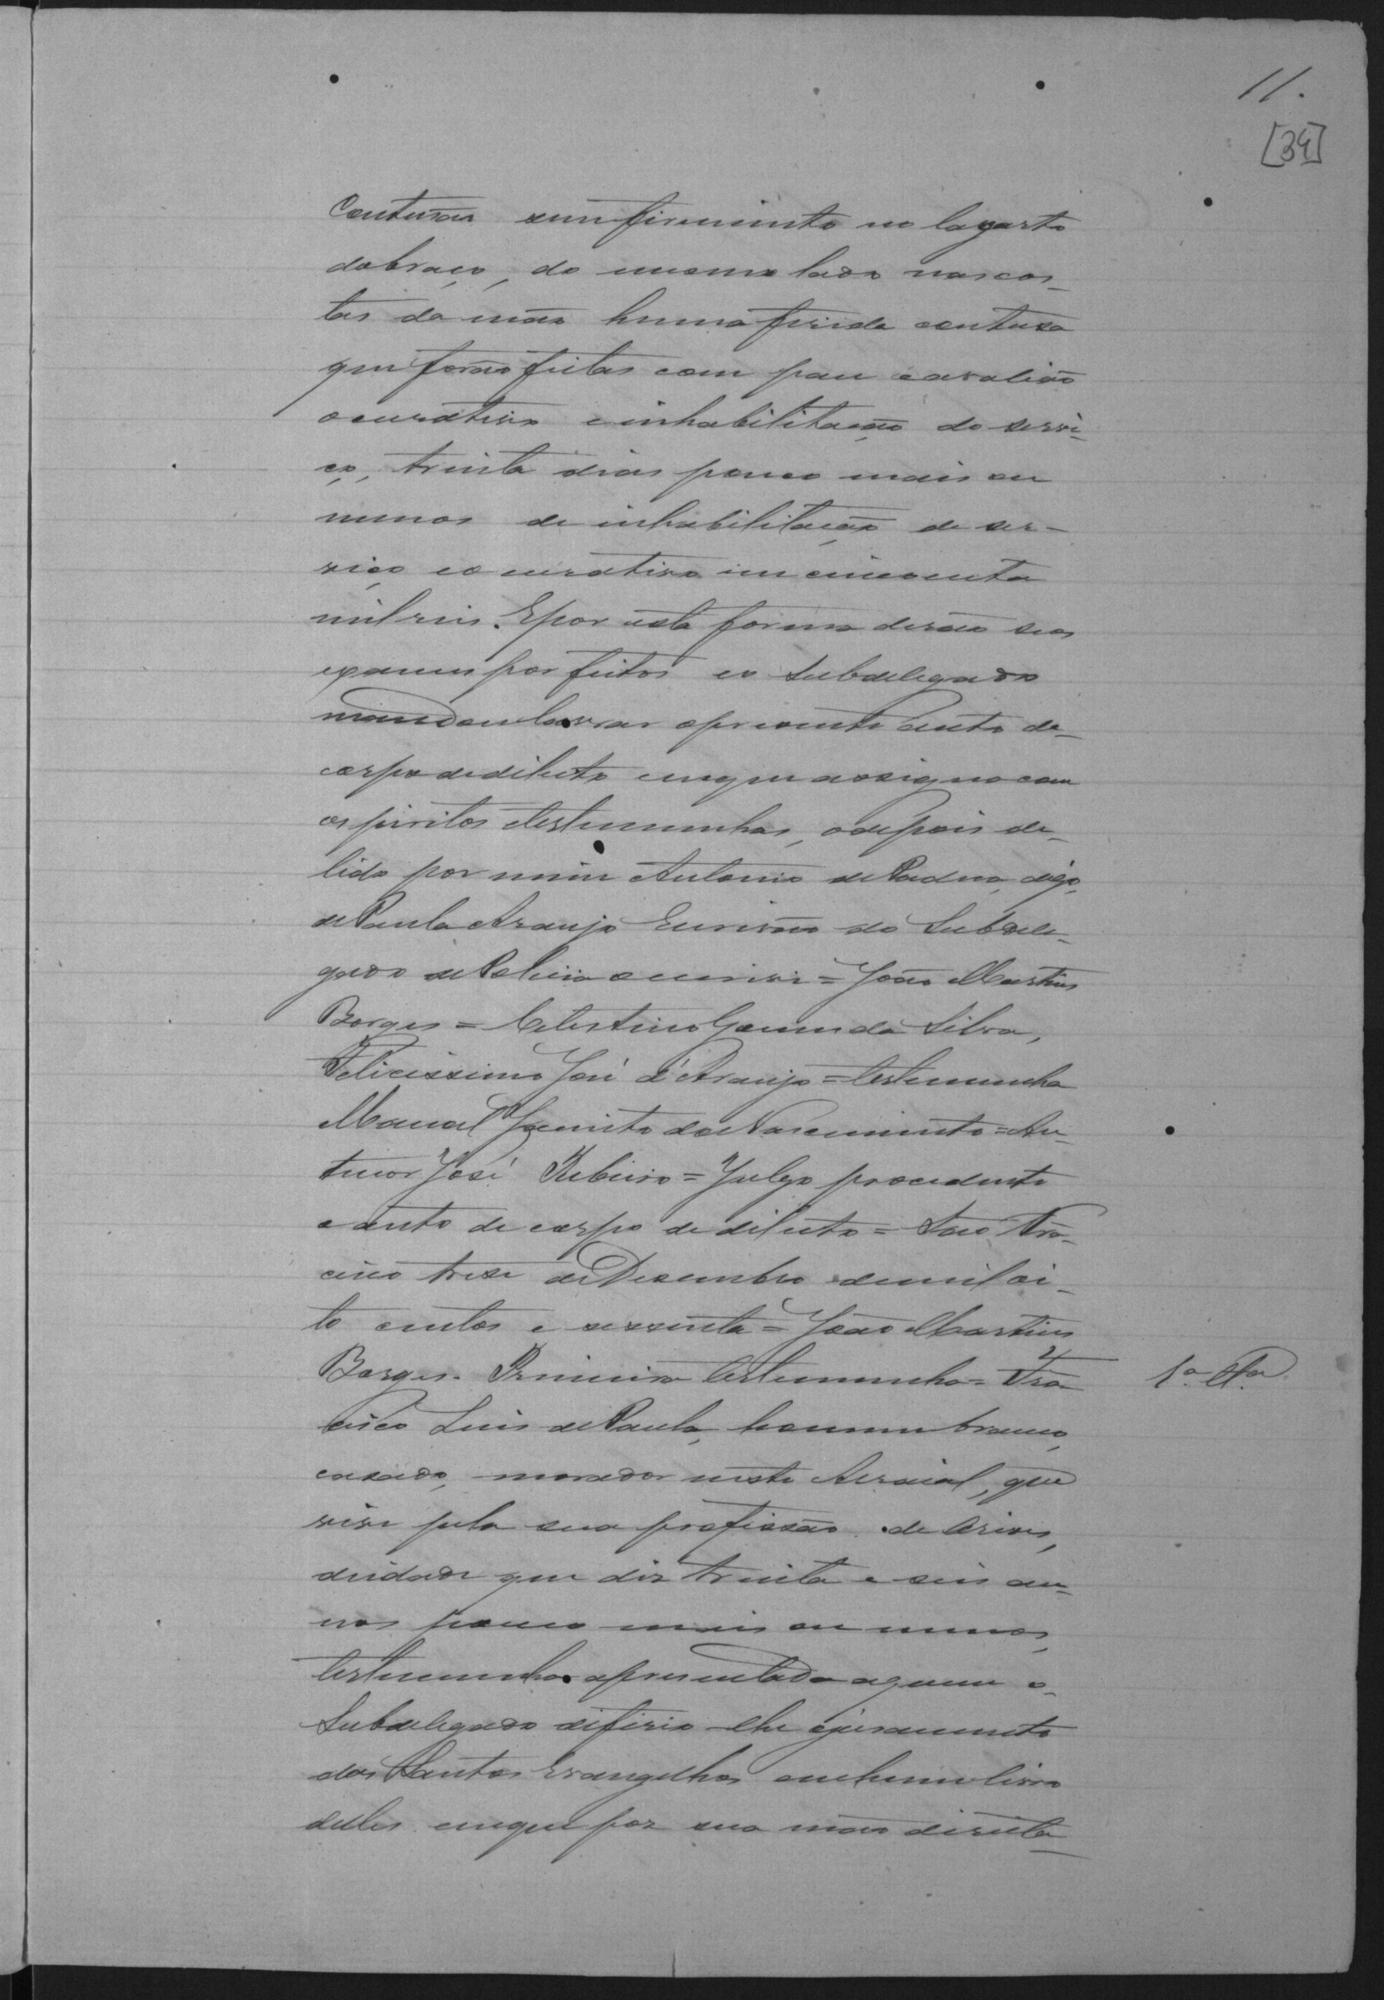 11.
[34]
Contusão sem firimento no lagarto
do braço, do mesmo lado nas cos-
tas da mão huma firida contusa
que forão feitas com pau e avalião
o curativo e inhabilitação do servi-
ço, trinta dias pouco mais ou
menos de inhabilitação de ser-
viço e o curativo em cincoenta
mil reis. E por esta forma derão seos
exames por feitos e o Subdelegado
mandou lavrar o presente auto de
corpo de delicto em que assigno com
os piritos e testemunhas, e depois de
lido por mim Antonio de Padua, digo,
de Paula Araujo Escrivão do Subdele-
gado de Policia o escrivi = João Martins
Borges = Celestino Gomes da Silva,
Felicissimo José d'Araujo = testemunha
Manoel Jacinto do Nascimento = An-
tenor José Ribeiro = Julgo procedente
o auto de corpo de delicto = São
cisco trese de Desembro de mil oi-
to centos e sessenta = João Martins
Borges. Primeira testemunha = Fran
cisco Luis de Paula, homem branco,
casado, morador neste Arraial, que
vive pela sua profissão de Orives,
de idade que diz trinta e seis an-
nos pouco mais ou menos,
testemunha apresentada a quem o
Subdelegado difirio lhe o juramento
dos Santos Evangelhos em hum livro
delles em que poz sua mão direita
1ª Tª